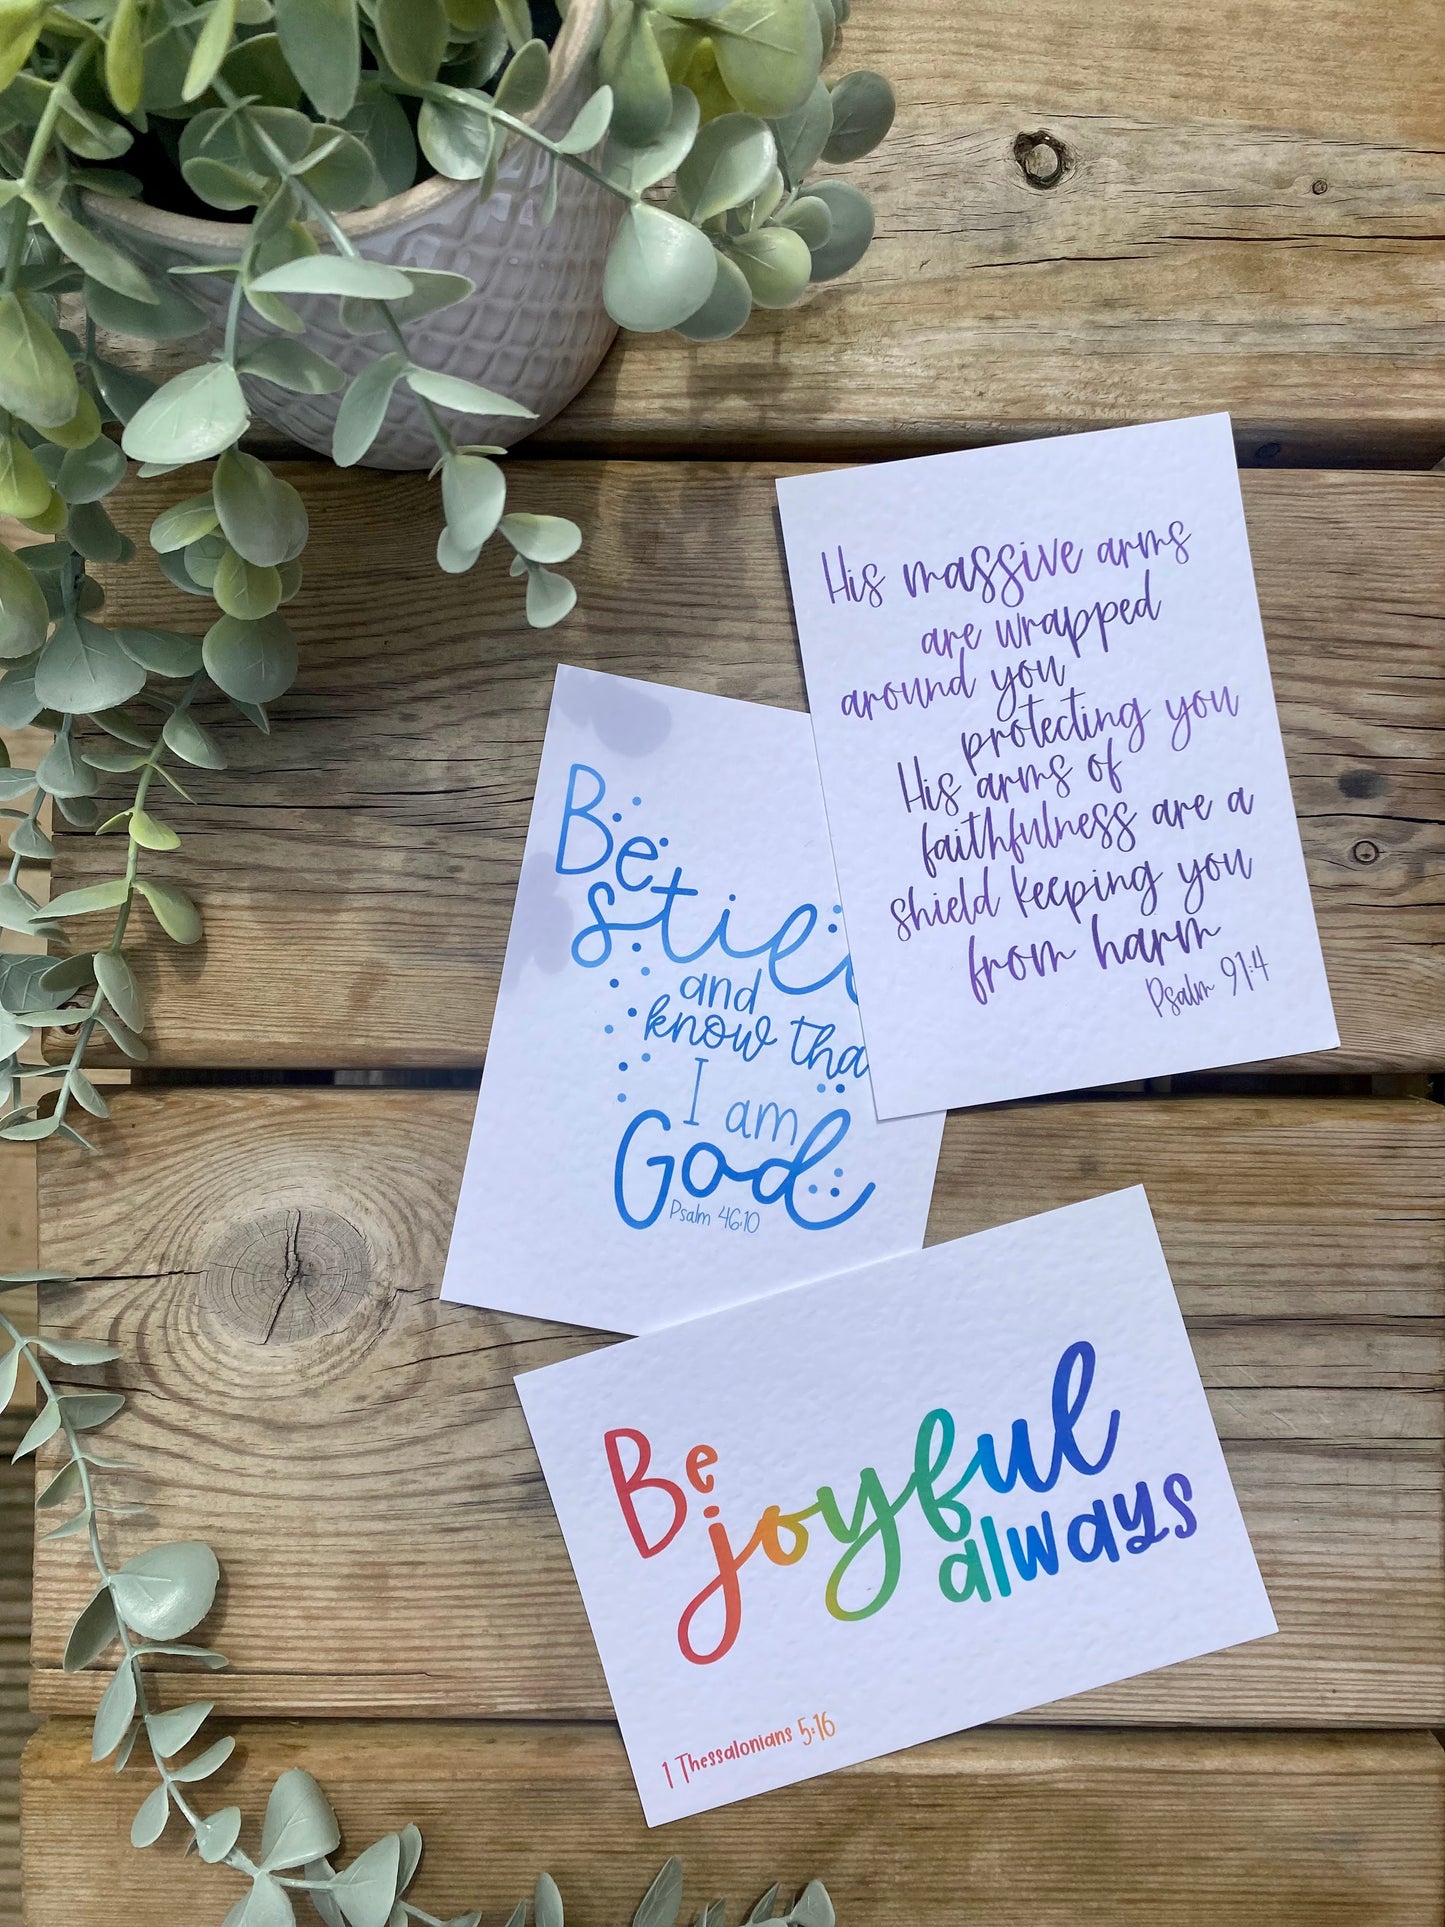 His massive arms
are wrapped
around you
protecting you
His arms of
faithfulness are a
shield keeping you
from harm
Psalm 91:4
Be
still
and
know tha
I am
God
Psalm 46:10
Be
joyful
always
1 Thessalonians 5:16